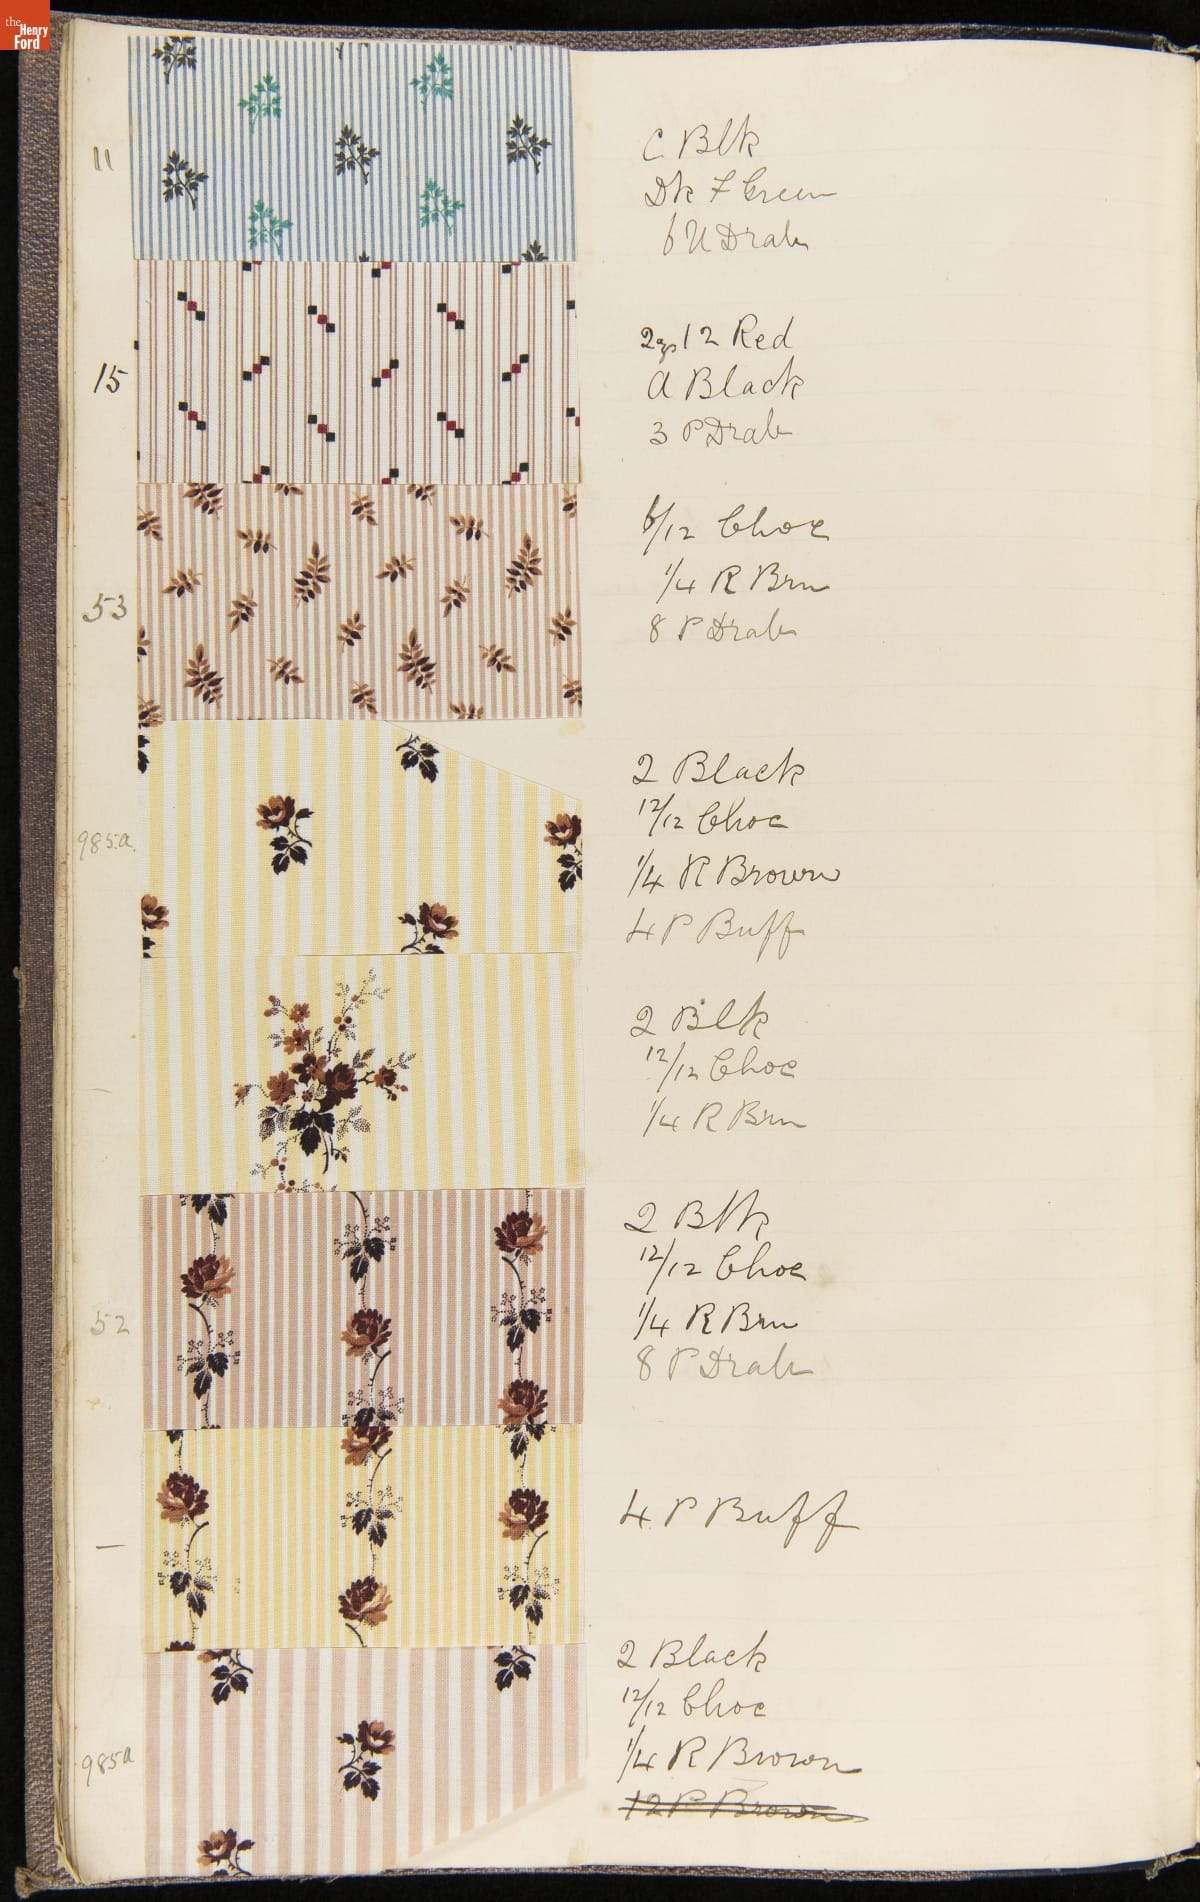 the
Henry
Ford
11
C Blk
Dk F Green
6 U Drab
15
12 Red
A Black
3 P Drab
53
6/12 Choc
1/4 R Brn
8 P Drab
985a.
2 Black
12/12 Choc
1/4 R Brown
4 P Buff
2 Blk
12/12 Choc
1/4 R Brn
52
2 Blk
12/12 Choc
1/4 R Brn
8 P Drab
4 P Buff
985a
2 Black
12/12 Choc
1/4 R Brown
12 P Brown